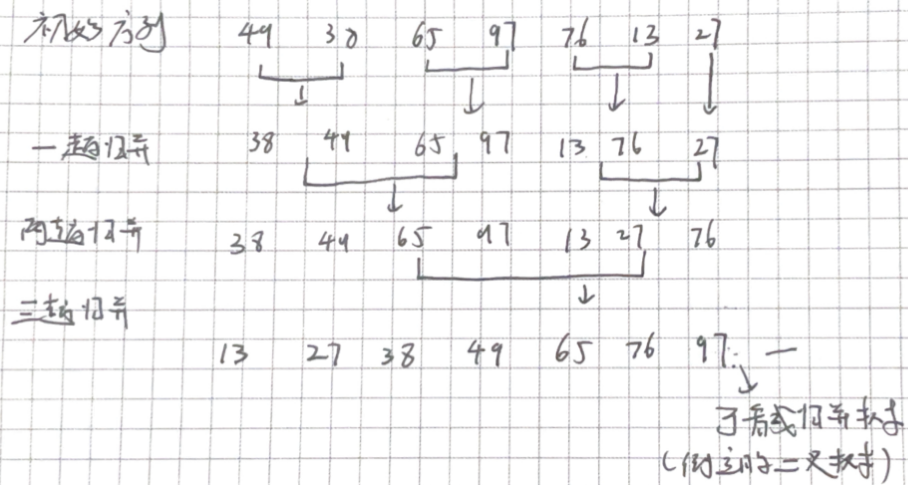 初始序列 49 38 65 97 76 13 27
一趟归并 38 49 65 97 13 76 27
两趟归并 38 49 65 97 13 27 76
三趟归并
13 27 38 49 65 76 97 —
可看成归并树
(倒立的二叉树)